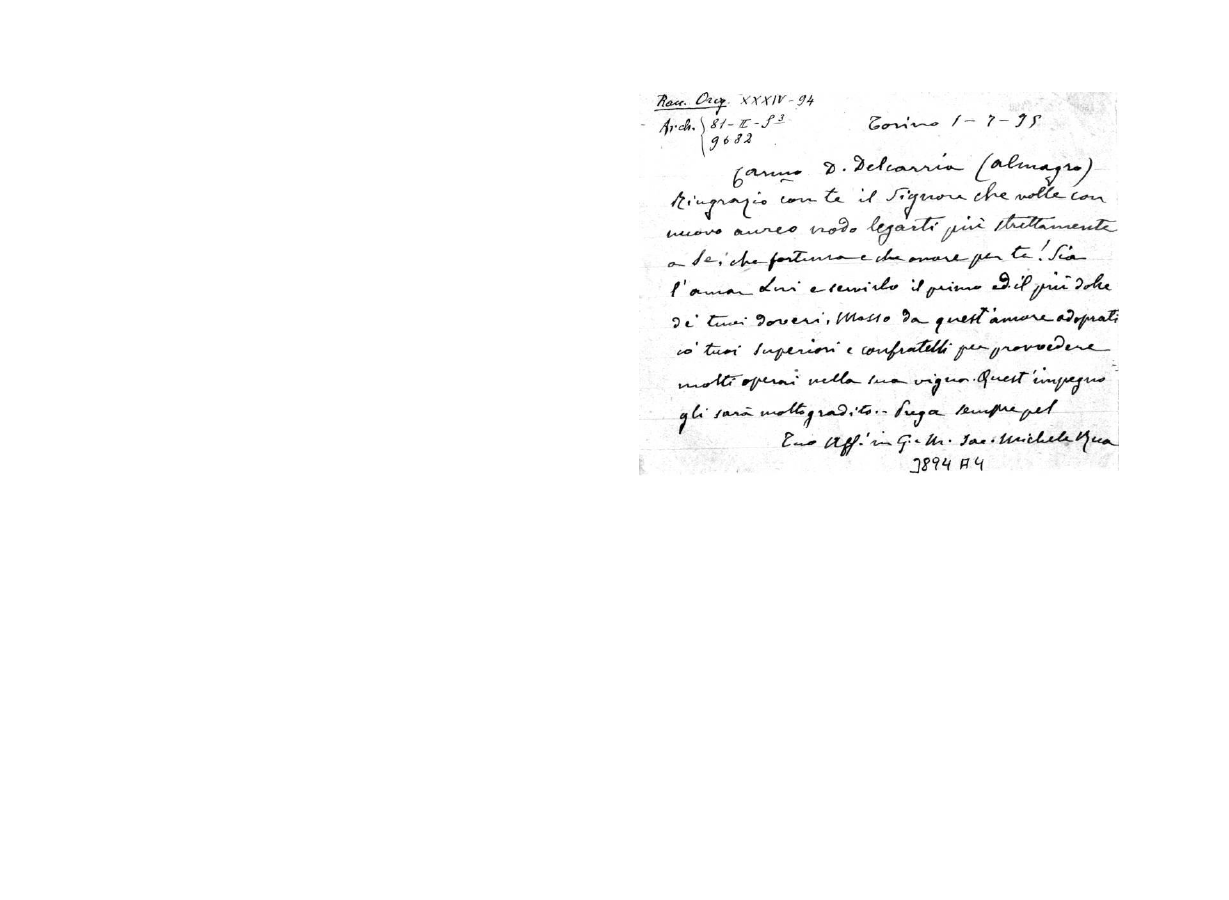 Racc. Orig. XXXIV - 94
Arch. 81 - II - S 3
9682
Torino 1 - 7 - 95
Carmo D. Delcarria (Almagro)
Ringrazio con te il Signore che volle con
nuovo aureo nodo legarti più strettamente
a Se; che fortuna e che onore per te! Sia
l'amar Lui e servirlo il primo ed il più dolce
de' tuoi doveri. Mosso da quest'amore adoprati
co' tuoi Superiori e confratelli per provvedere
molti operai nella sua vigna. Quest'impegno
gli sarà molto gradito. - Prega sempre pel
Tuo Aff. in G. e M. Sac. Michele Rua
3894 A4